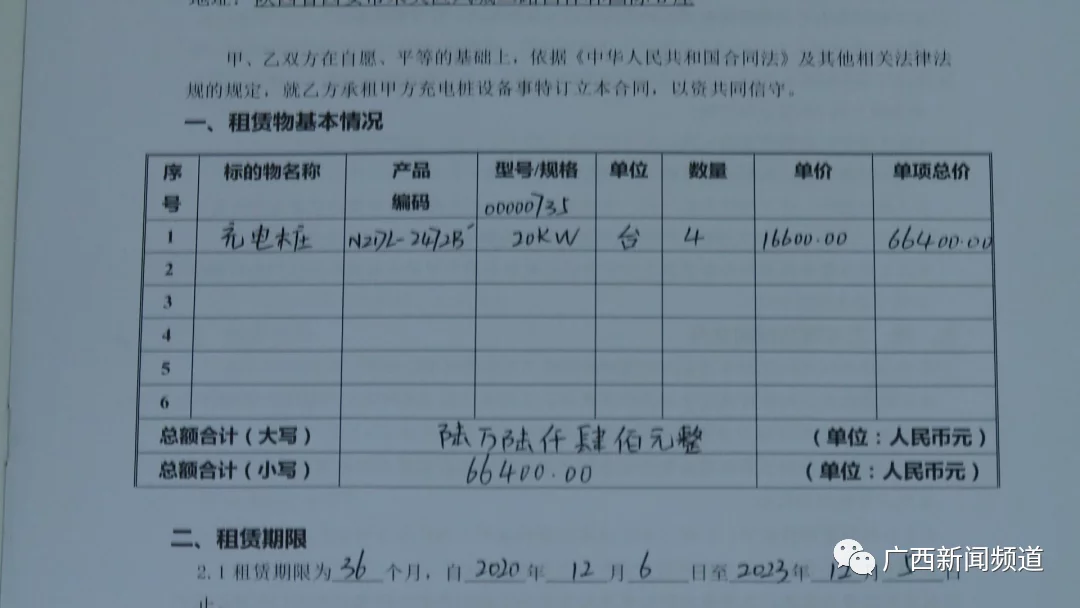 甲、乙双方在自愿、平等的基础上，依据《中华人民共和国合同法》及其他相关法律法
规的规定，就乙方承租甲方充电桩设备事特订立本合同，以资共同信守。
一、租赁物基本情况
序号 标的物名称 产品编码 型号/规格 单位 数量 单价 单项总价
00000735
1 充电桩 20KW 台 4 16600.00 66400.00
2
3
4
5
6
总额合计（大写） 陆万陆仟肆佰元整 （单位：人民币元）
总额合计（小写） 66400.00 （单位：人民币元）
二、租赁期限
2.1 租赁期限为 36 个月，自 2020 年 12 月 6 日至 2023 年 12 月 5 日
止
广西新闻频道